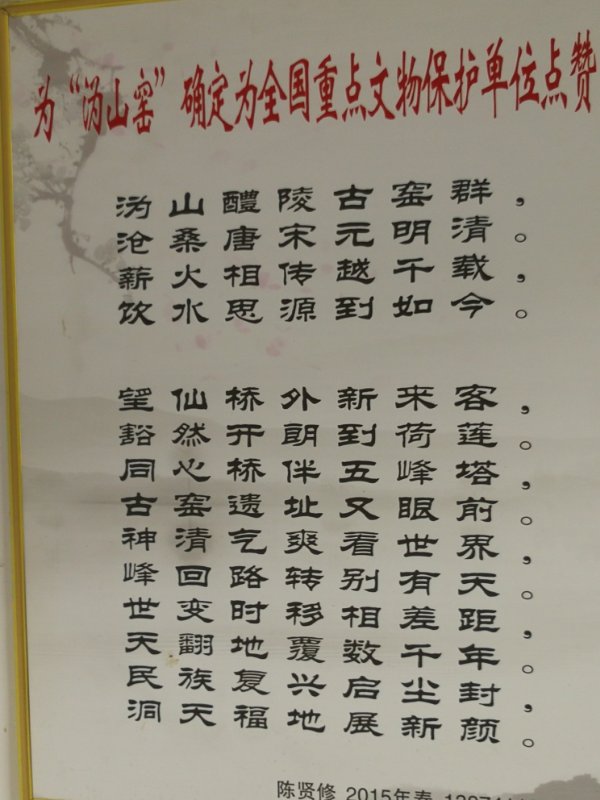 为“沩山窑”确定为全国重点文物保护单位点赞
沩山醴陵古窑群，
沧桑唐宋元明清。
薪火相传越千载，
饮水思源到如今。
望仙桥外新来客，
豁然开朗到荷莲。
同心桥伴五峰塔，
古窑遗址又眼前。
神清气爽看世界，
峰回路转别有天。
世变时移相差距，
天翻地覆数千年。
民族复兴启尘封，
洞天福地展新颜。
陈贤修 2015年春